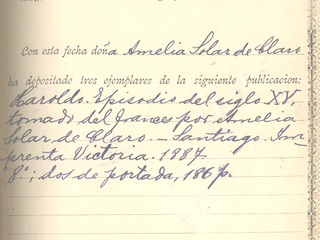 Con esta fecha doña Amelia Solar de Claro
ha depositado tres ejemplares de la siguiente publicacion:
Haroldo. Episodio del siglo XV,
tomado del frances por Amelia
Solar de Claro. – Santiago. Im-
prenta Victoria. 1887.
8º; dos de portada, 186 p.